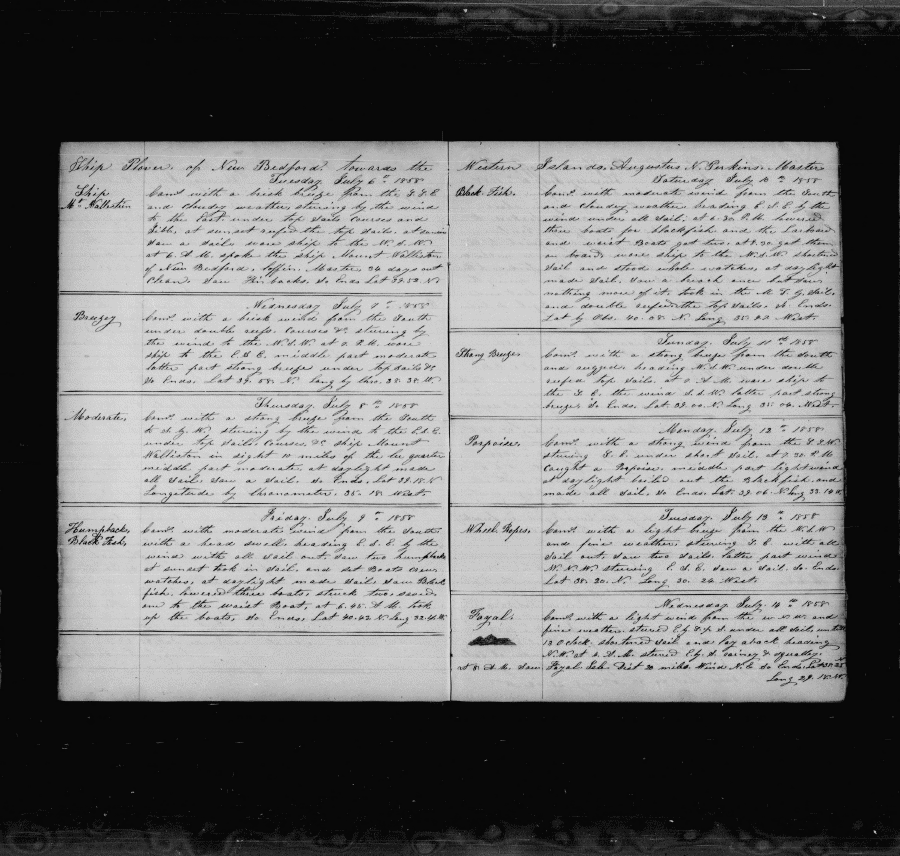 Ship Plover of New Bedford towards the
Tuesday July 6th 1858
Ship
Mt Wallaston
Comd with a brisk breeze from the S.S.E
and cloudy weather steering by the wind
to the East under top sails courses and
Jibb, at sunset reefed the top sails.
saw a sail, wore ship to the W.S.W
at 6. A.M. spoke the ship Mount Wallaston
of New Bedford, Coffin, Master 26 days out
Clean. Saw Fin backs. So Ends Lat 39.53. N
Wednesday July 7th 1858
Breezey
Comd with a brisk wind from the South
under double reefs. Courses &c steering by
the wind to the W.S.W at 2 P.M. wore
ship to the E.S.E. middle part moderate
latter part strong breezes under top sails &c
So Ends. Lat 39.58. N. Long by Chro. 38.38. W.
Thursday July 8th 1858
Moderate
Comd with a strong breeze from the South
to S.S.W. steering by the wind to the E.S.E.
under top sails Courses &c ship Mount
Wallaston in sight 10 miles off the lee quarter
middle part moderate, at daylight made
all sail. Saw a sail. So Ends. Lat 39.18. N
Longetude by Chronometer. 35.18. West.
Friday July 9th 1858
Humpbacks
& Black Fish.
Comd with moderate wind from the South
with a head swell, heading E.S.E. by the
wind with all sail out saw two humpbacks
at sunset took in sail and set Boats Crew
watches, at daylight made sail saw Black
fish, lowered three boats, struck two, saved
one to the Waist Boat, at 6.45. A.M. took
up the boats, So Ends, Lat 40.42 N. Long
Western Islands, Augustus N. Perkins. Master
Saturday July 10th 1858
Black Fish.
Comd with moderate wind from the South
and cloudy weather heading E.S.E by the
wind under all sail. at 6.30 P.M. lowered
three boats for blackfish and the Larboard
and waist Boats got two. at 7.30 got them
on board, wore ship to the W.S.W. shortened
sail and stood whole watches, at daylight
made sail. Saw a breach once but saw
nothing more of it, took in the M.T.G. sail,
and double reefed the top sails, So Ends.
Lat by Obs. 40.08. N. Long 35.22 West.
Sunday. July 11th 1858
Strong Breezes
Comd with a strong breeze from the South
and rugged, heading W.S.W. under double
reefed top sails. at 2 A.M. wore ship to
the S.E. the wind S.S.W. latter part strong
breezes. So Ends. Lat 39.00. N. Long 35.04. West.
Monday. July 12th 1858
Porpoise.
Comd with a strong wind from the S.S.W.
steering S.E. under short sail. at 7.30 P.M.
Caught a Porpoise. middle part light wind
at daylight boiled out the Blackfish, and
made all sail. So Ends. Lat. 39.06. N Long 33.14 W.
Tuesday. July 13th 1858
Wheel Ropes.
Comd with a light breeze from the W.S.W
and fine weather, steering S.E. with all
sail out, saw two sails. latter part wind
W.N.W. steering E.S.E. saw a sail. So Ends
Lat 38.20. N. Long 30.24. West.
Wednesday July. 14th 1858
Fayal.
Comd with a light wind from the W.N.W. and
fine weather. steered E by S. under all sail until
12 O clock. shortened sail and lay aback heading
N.W. at 2. A.M. steered E by S. rainey & squally.
at 8. A.M. saw Fayal Isle. Dist 20 miles. Wind N.E. So Ends. Lat
Long 29.18. W.